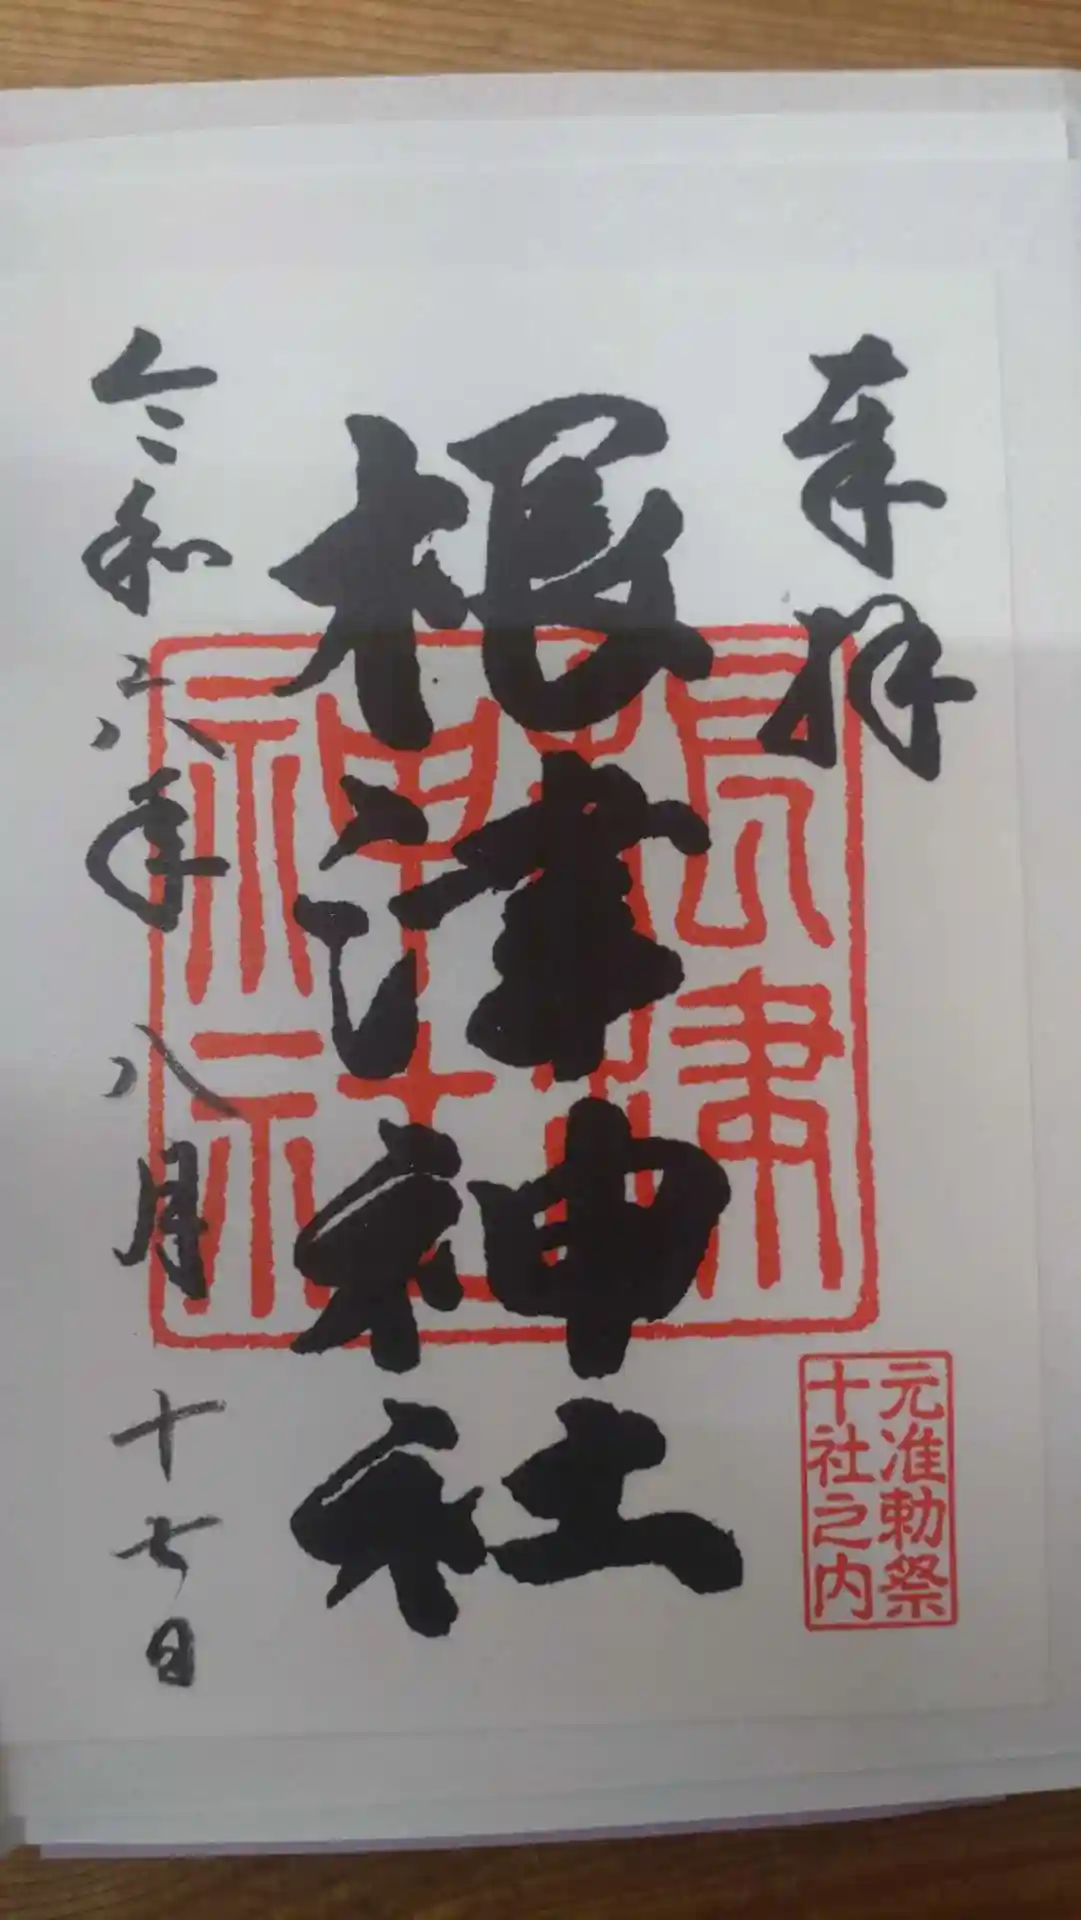 奉拝
根津神社
令和六年八月十七日
根津
神社
元准勅祭
十社之内